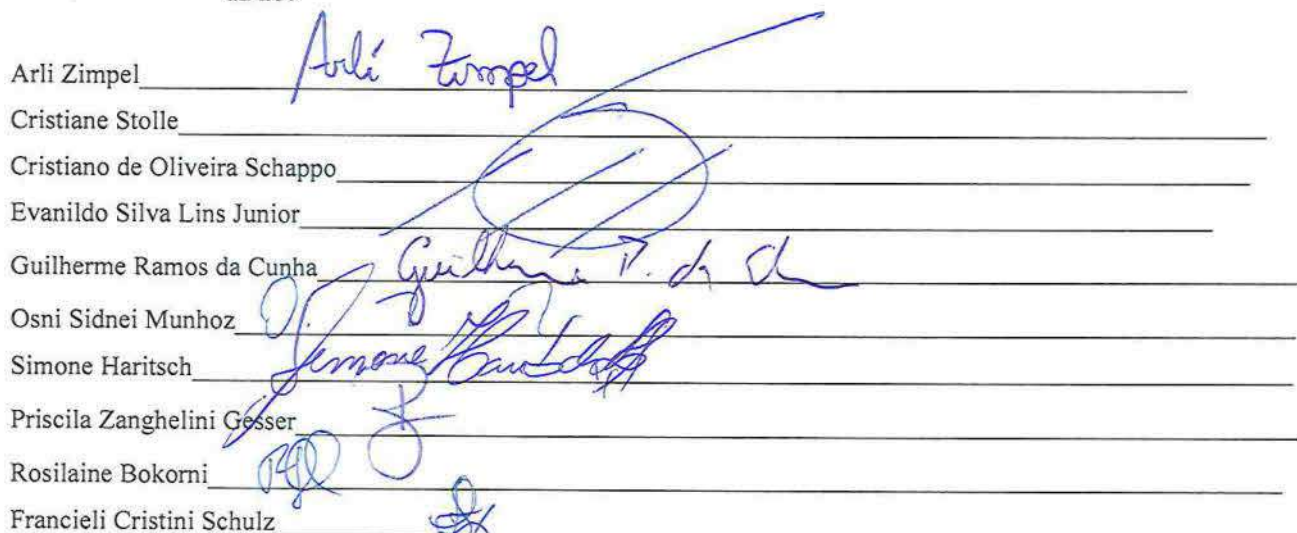 Arli Zimpel Arli Zimpel
Cristiane Stolle
Cristiano de Oliveira Schappo
Evanildo Silva Lins Junior
Guilherme Ramos da Cunha Guilherme
Osni Sidnei Munhoz
Simone Haritsch Simone
Priscila Zanghelini Gesser
Rosilaine Bokorni
Francieli Cristini Schulz